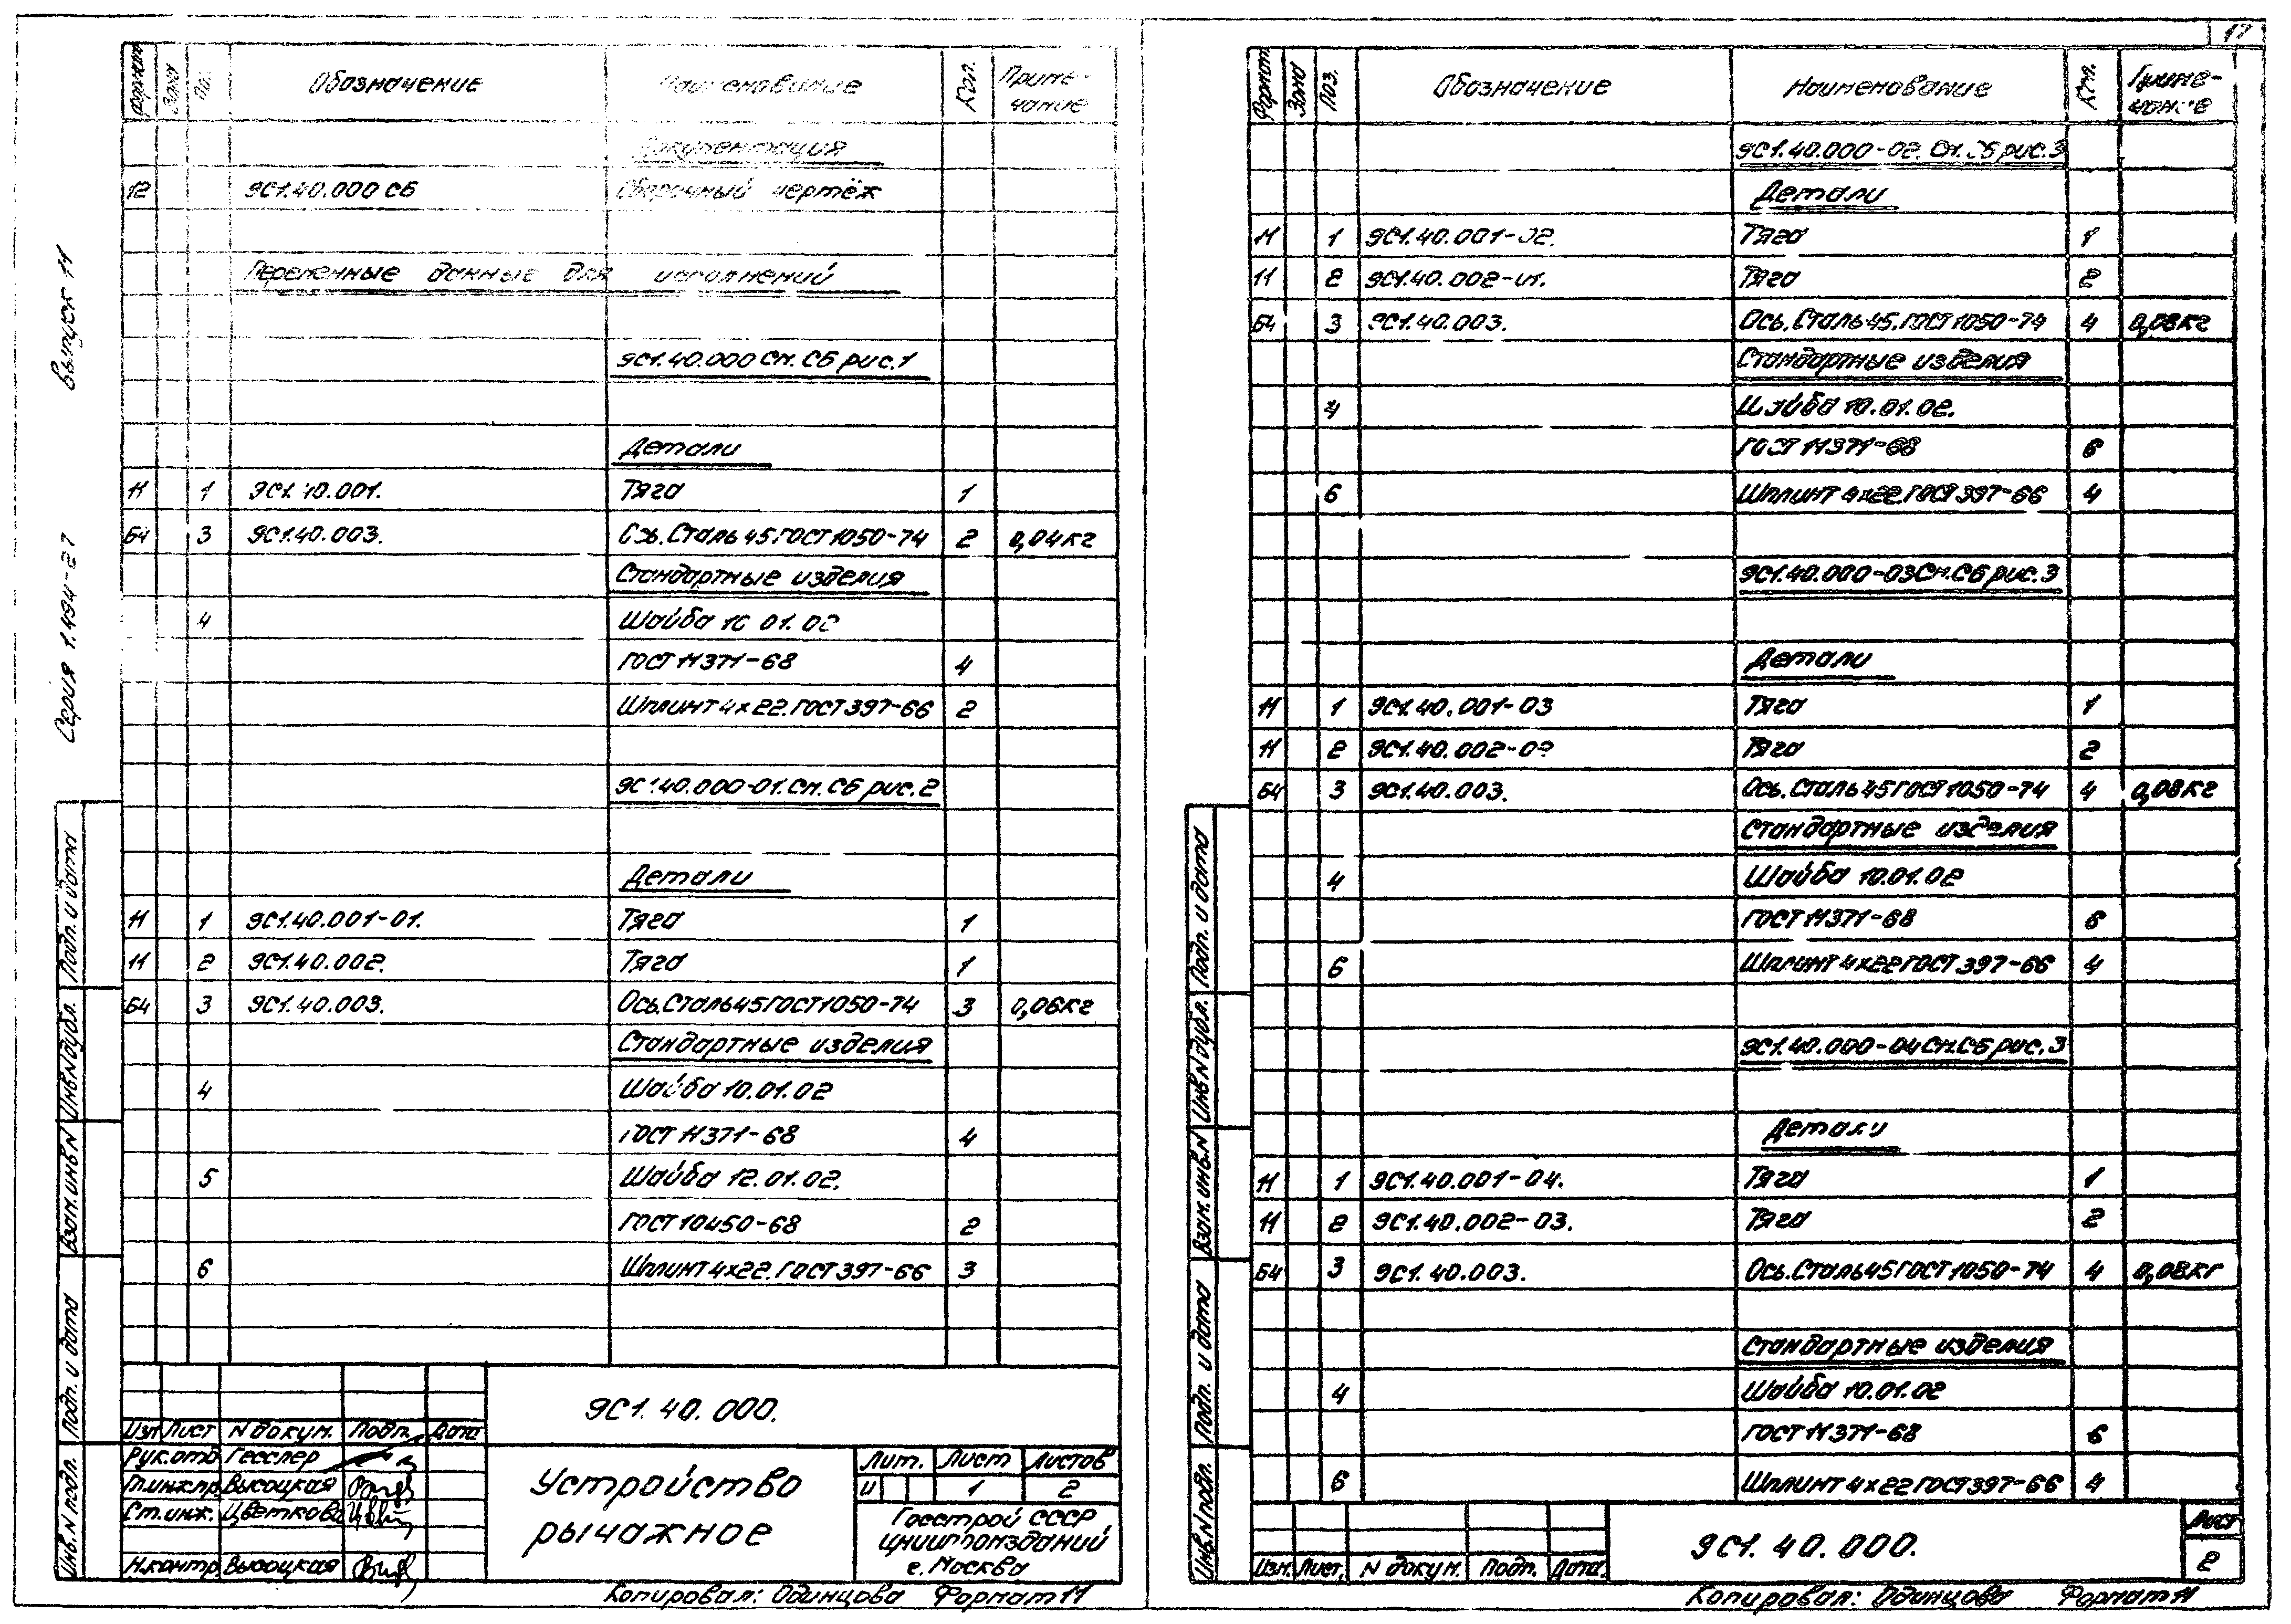 17
Серия 1.494-27 Выпуск 11
Формат Зона Поз. Обозначение Наименование Кол. Примечание
Документация
12 9С1.40.000 СБ Сборочный чертёж
Переменные данные для исполнений
9С1.40.000 См. СБ рис.1
Детали
11 1 9С1.40.001. Тяга 1
Б4 3 9С1.40.003. Ось. Сталь 45 ГОСТ 1050-74 2 0,04кг
Стандартные изделия
4 Шайба 10.01.02
ГОСТ 11371-68 4
Шплинт 4х22. ГОСТ 397-66 2
9С1.40.000-01. См. СБ рис.2
Детали
11 1 9С1.40.001-01. Тяга 1
11 2 9С1.40.002. Тяга 1
Б4 3 9С1.40.003. Ось. Сталь 45 ГОСТ 1050-74 3 0,06кг
Стандартные изделия
4 Шайба 10.01.02
ГОСТ 11371-68 4
5 Шайба 12.01.02.
ГОСТ 10450-68 2
6 Шплинт 4х22. ГОСТ 397-66 3
Подп. и дата
Инв.N дубл.
Взам. инв.N
Подп. и дата
Инв.N подл.
9С1.40.000.
Изм Лист N докум. Подп. Дата
Рук.отд Гесслер
Гл.инж.пр. Высоцкая
Ст.инж. Цветкова
Н.контр. Высоцкая
Устройство рычажное
Лит. Лист Листов
И 1 2
Госстрой СССР
ЦНИИпромзданий
г. Москва
Копировал: Одинцова Формат 11
Формат Зона Поз. Обозначение Наименование Кол. Примечание
9С1.40.000-02. См. СБ рис.3
Детали
11 1 9С1.40.001-02. Тяга 1
11 2 9С1.40.002-01. Тяга 2
Б4 3 9С1.40.003. Ось. Сталь 45. ГОСТ 1050-74 4 0,08кг
Стандартные изделия
4 Шайба 10.01.02.
ГОСТ 11371-68 6
6 Шплинт 4х22. ГОСТ 397-66 4
9С1.40.000-03 См. СБ рис.3
Детали
11 1 9С1.40.001-03 Тяга 1
11 2 9С1.40.002-02 Тяга 2
Б4 3 9С1.40.003. Ось. Сталь 45 ГОСТ 1050-74 4 0,08кг
Стандартные изделия
4 Шайба 10.01.02
ГОСТ 11371-68 6
6 Шплинт 4х22 ГОСТ 397-66 4
9С1.40.000-04 См. СБ рис.3
Детали
11 1 9С1.40.001-04. Тяга 1
11 2 9С1.40.002-03. Тяга 2
Б4 3 9С1.40.003. Ось. Сталь 45 ГОСТ 1050-74 4 0,08кг
Стандартные изделия
4 Шайба 10.01.02
ГОСТ 11371-68 6
6 Шплинт 4х22 ГОСТ 397-66 4
Подп. и дата
Инв.N дубл.
Взам. инв.N
Подп. и дата
Инв.N подл.
Изм. Лист. N докум. Подп. Дата.
9С1.40.000.
Лист
2
Копировал: Одинцова Формат 11